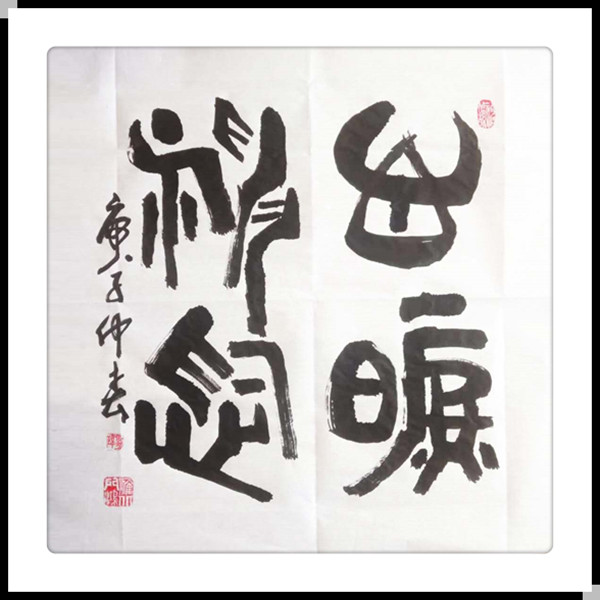 心曠
神怡
庚子仲春